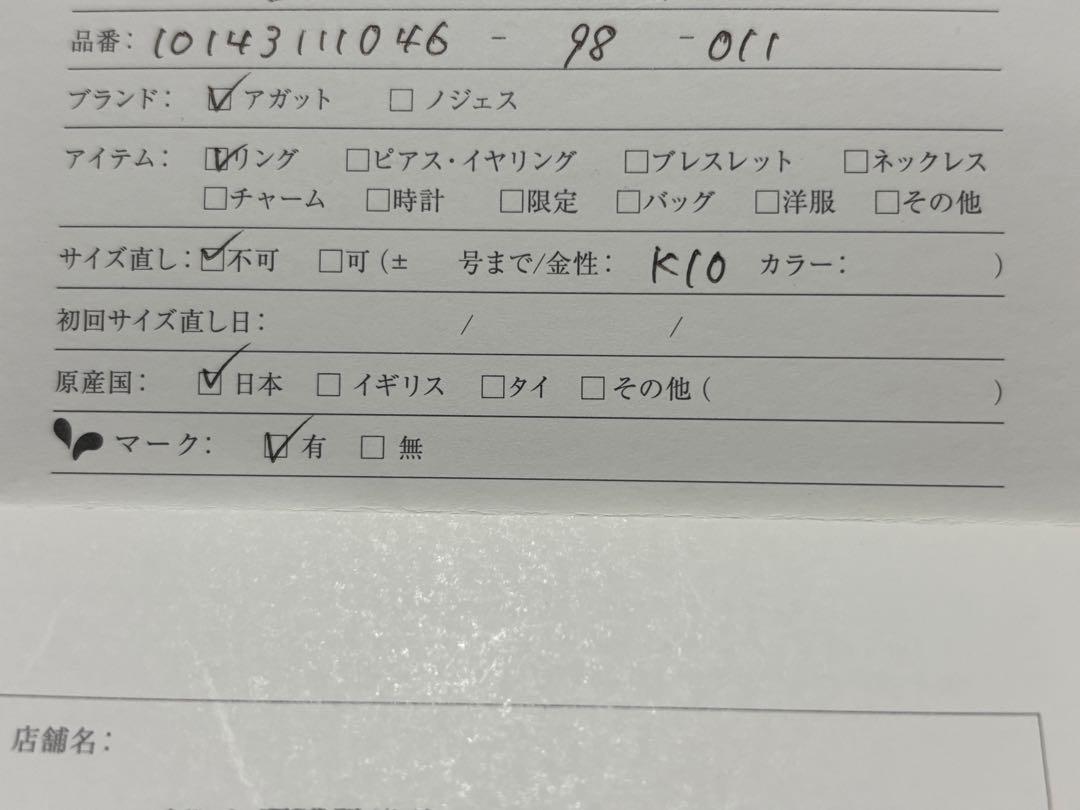 品番: 10143111046 - 98 - 011
ブランド: ☑アガット □ノジェス
アイテム: ☑リング □ピアス・イヤリング □ブレスレット □ネックレス
□チャーム □時計 □限定 □バッグ □洋服 □その他
サイズ直し: ☑不可 □可(± 号まで/金性: K10 カラー: )
初回サイズ直し日: / /
原産国: ☑日本 □イギリス □タイ □その他( )
マーク: ☑有 □無
店舗名: